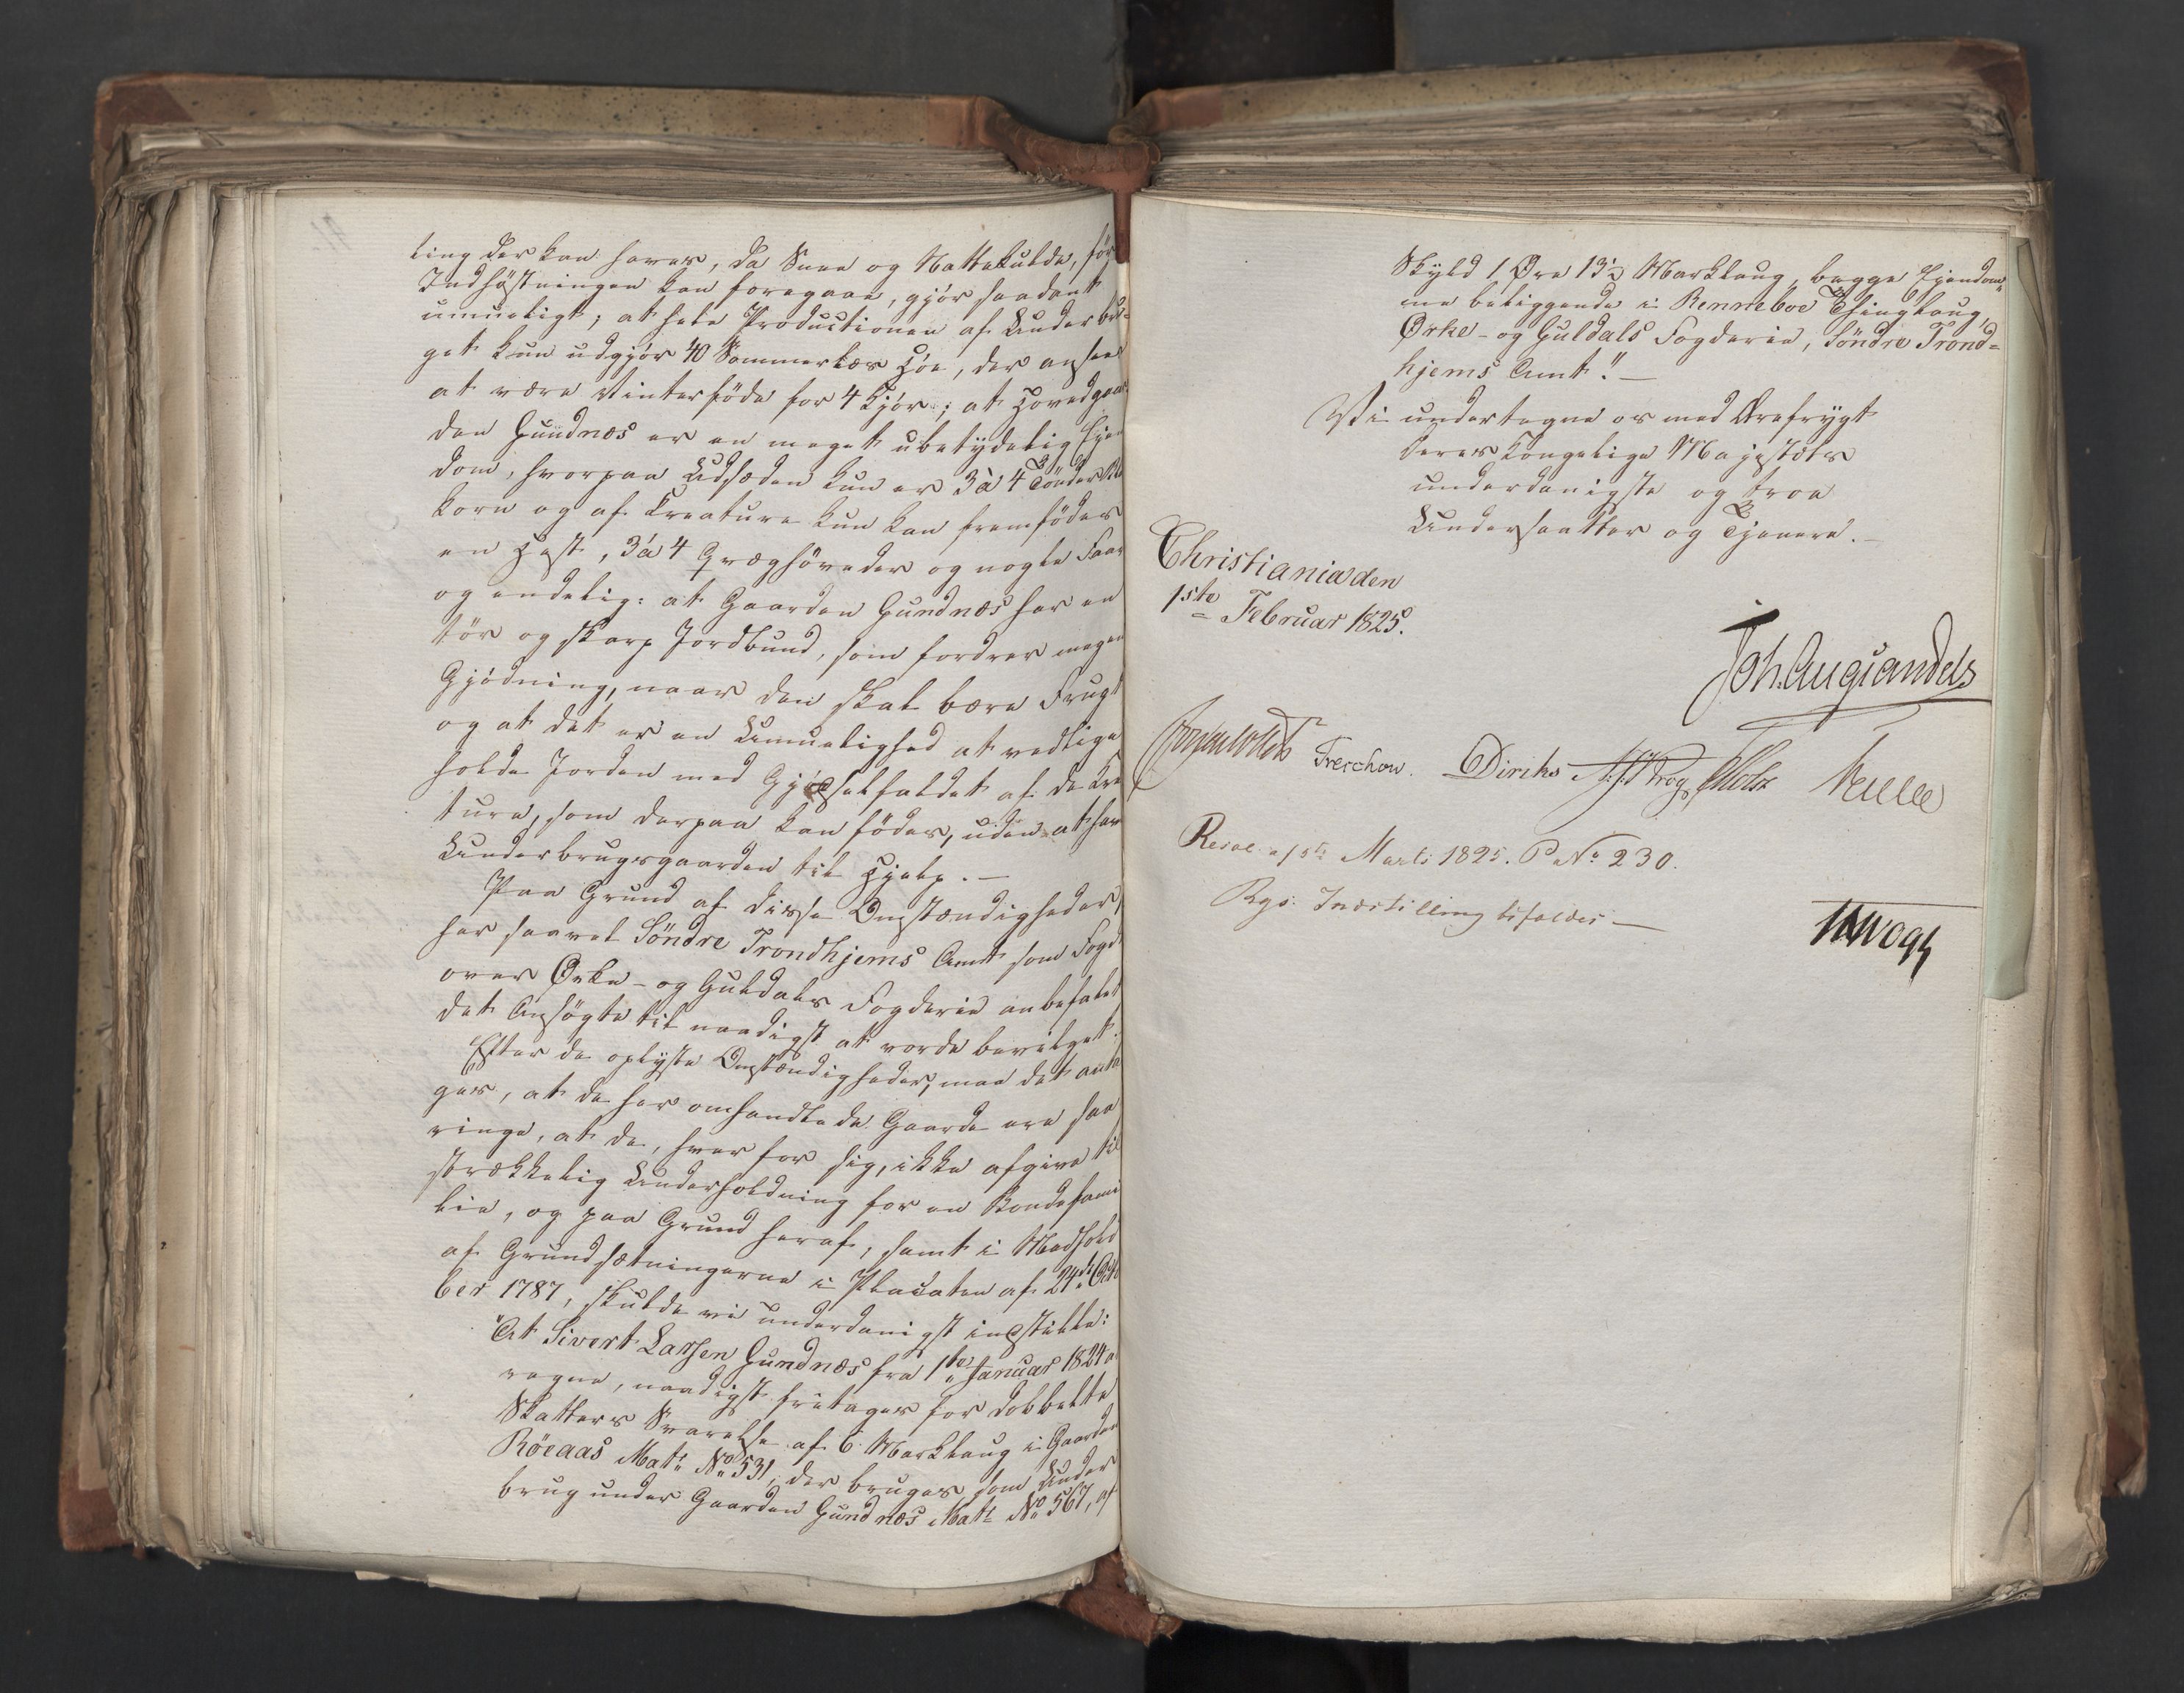 ling der kan haves, da Snee og Nattekulde, før
Indhøstningen kan foregaae, gjør saadant
umueligt; at hele Productionen af Underbru-
get kun udgjør 40 Sommerlæs Høe, der ansees
at være Vinterføde for 4 Kjør; at Hovedgaar
den Gundnæs er en meget ubetydelig Eien
dom, hvorpaa Udsæden kun er 3 à 4 Tønder
Korn og af Creature kun kan fremfødes
en Hest, 3 à 4 Qvæghøveder og nogle Faar
og endelig: at Gaarden Gundnæs har en
tør og skarp Jordbund, som fordrer megen
Gjødning, naar den skal bære Frugt
og at det er en Umuelighed at vedlige
holde Jorden med Gjødselfaldet af de Cre
ture, som derpaa kan fødes, uden at have
Underbrugsgaarden til Hjelp. —
Paa Grund af disse Omstændigheder,
har saavel Söndre Trondhjems Amt som Fogden
over Örke- og Guldals Fogderie anbefalet
det Ansøgte til naadigst at vorde bevilget.
Efter de oplyste Omstændigheder, maa det anta
ges, at de her omhandlede Gaarde ere saa
ringe, at de, hver for sig, ikke afgive til
strækkelig Underholdning for en Bondefami
lie, og paa Grund heraf, samt i Medhold
af Grundsætningerne i Placaten af 24de Octo
ber 1787, skulde vi underdanigst indstille:
"At Sivert Larssen Gundnæs fra 1ste Januar 1824 a
regne, naadigst fritages for dobbelte
Skatters Svarelse af 6 Marklaug i Gaarden
Röeaas Mat: No 531, der bruges som Under
brug under Gaarden Gundnæs Mat: No 567, af
Skyld 1 Øre 13½ Marklaug, begge Eiendom-
me beliggende i Renneboe Thinglaug,
Örke- og Guldals Fogderie, Söndre Trond=
hjems Amt." —
Vi undertegne os med Ærefrygt
Deres Kongelige Majestæts
underdanigste og troe
Undersaatter og Tjenere. —
Christiania den
1ste Februar 1825.
Joh. Aug Sandels
Treschow. Diriks Krog Motzfeldt
Resol. 1ste Marti 1825. P No 230.
Rgs. Indstilling bifaldes —